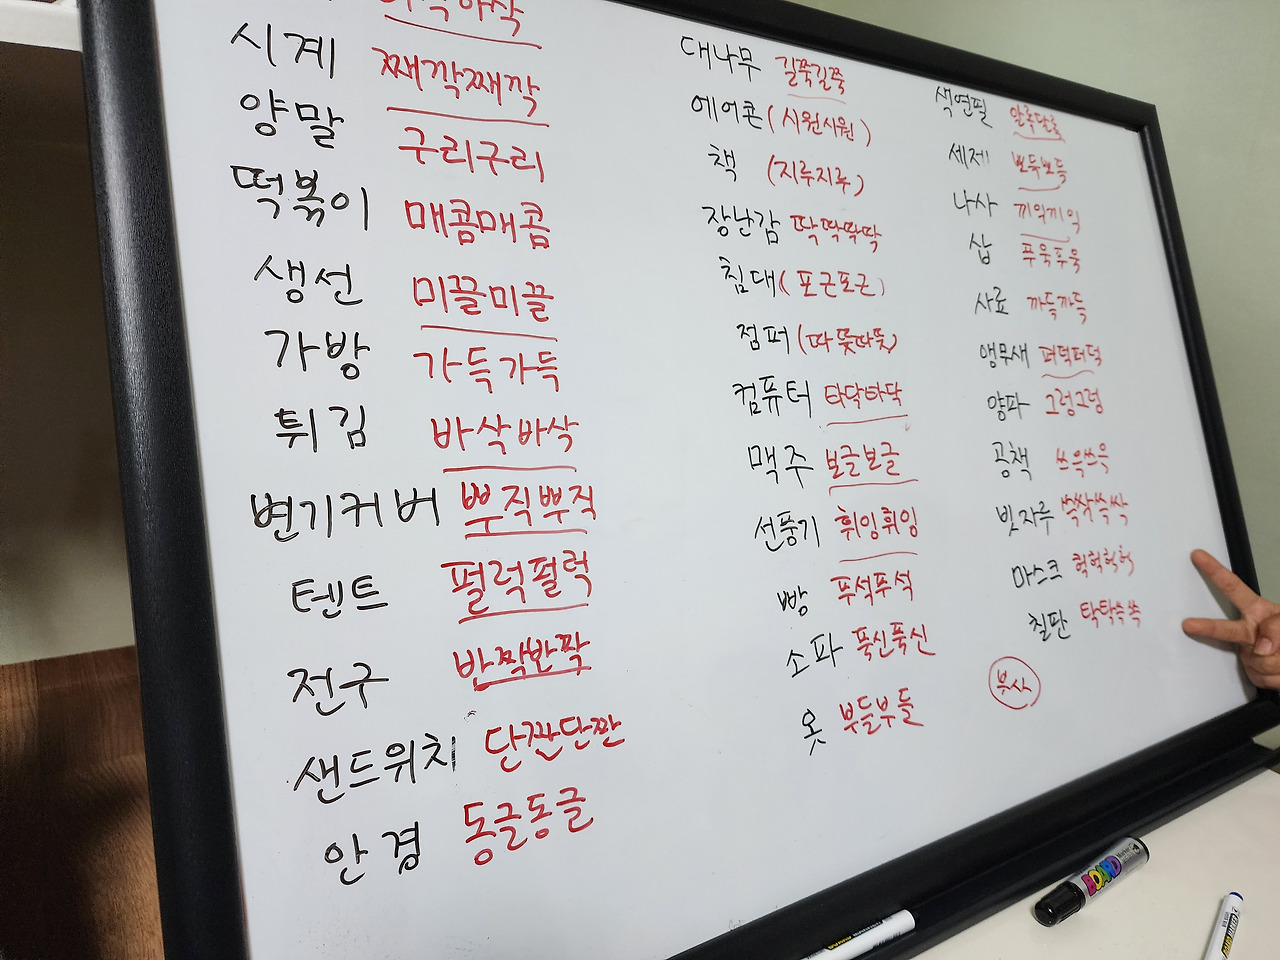 시계 째깍째깍
양말 구리구리
떡볶이 매콤매콤
생선 미끌미끌
가방 가득가득
튀김 바삭바삭
변기커버 뿌직뿌직
텐트 펄럭펄럭
전구 반짝반짝
샌드위치 단짠단짠
안경 동글동글
대나무 길쭉길쭉
에어콘 (시원시원)
책 (지루지루)
장난감 딱딱딱딱
침대 (포근포근)
점퍼 (따뜻따뜻)
컴퓨터 타닥타닥
맥주 보글보글
선풍기 휘잉휘잉
빵 푸석푸석
소파 푹신푹신
옷 부들부들
색연필 알록달록
세제 뽀득뽀득
나사 끼익끼익
삽 푸욱푸욱
사료 까득까득
앵무새 퍼덕퍼덕
양파 그렁그렁
공책 쓰윽쓰윽
빗자루 쓱싹쓱싹
마스크 헉헉허허
칠판 탁탁슥슥
부사
BOARD